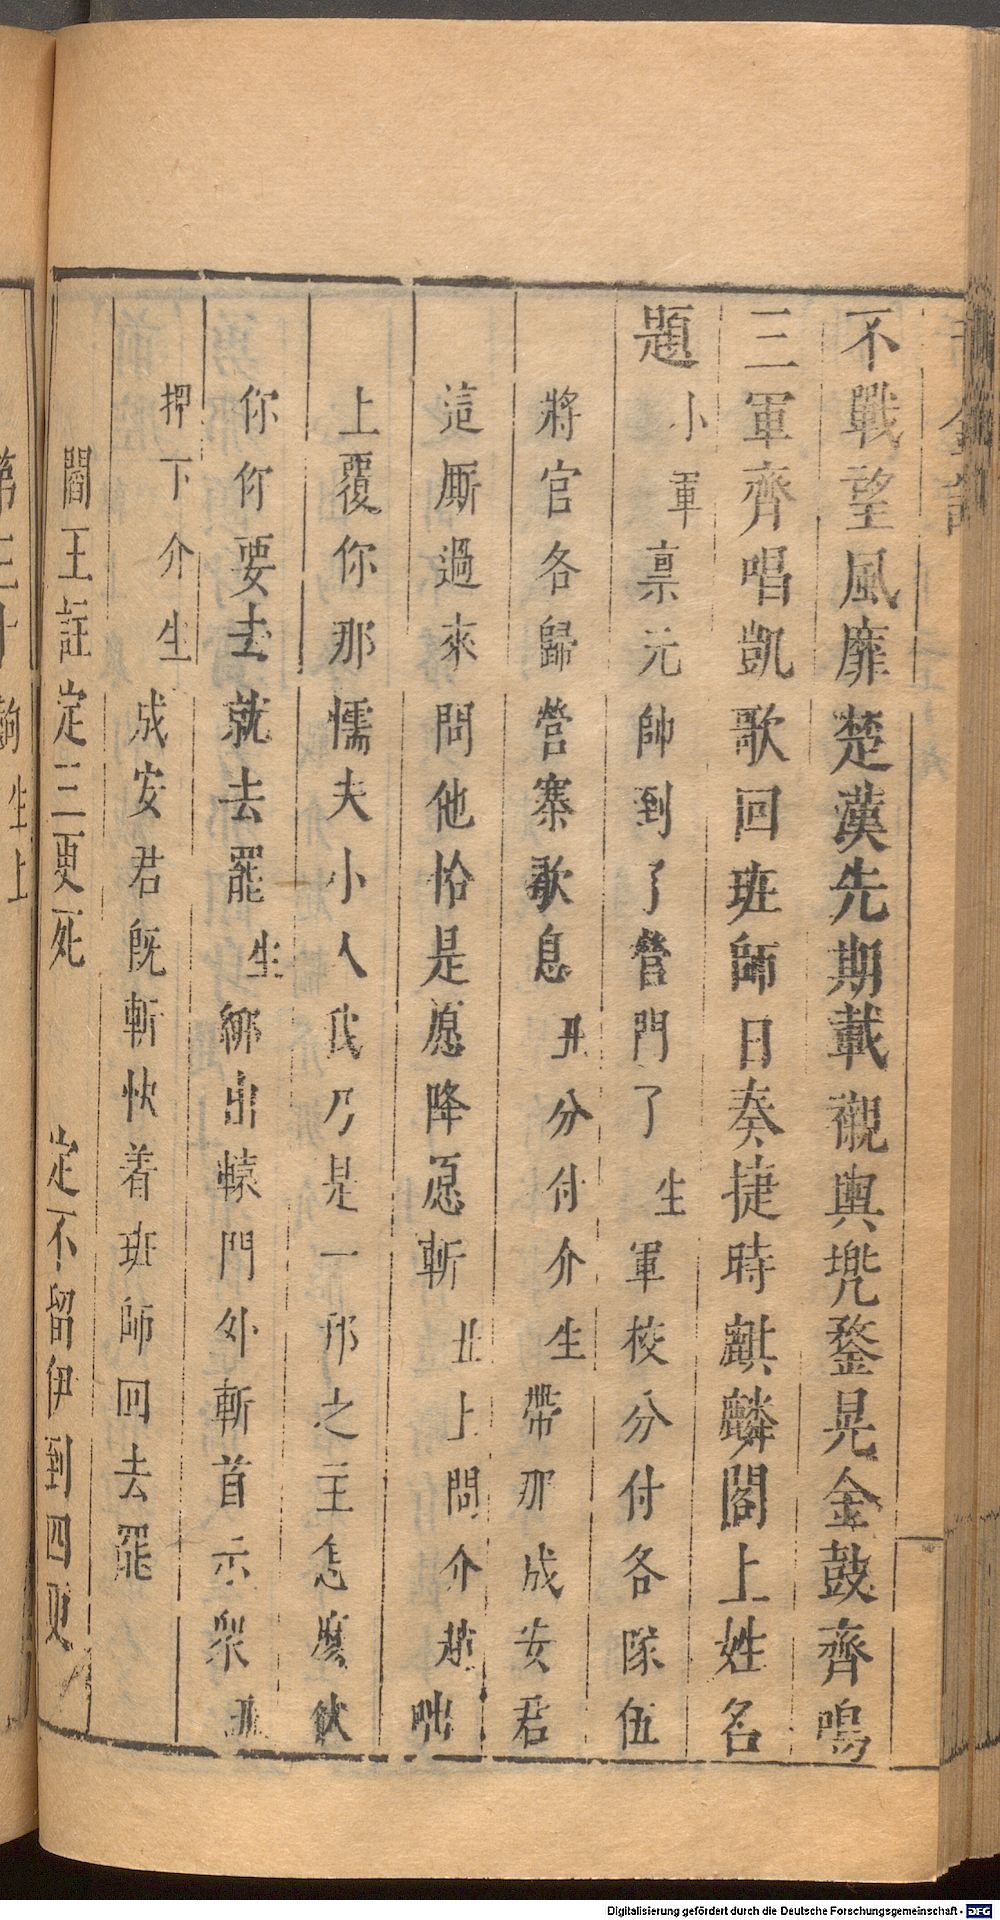 不戰望風靡楚漢先期載觀輿兠鍪晃金鼓齊鳴
三軍齊唱凱歌回班師日奏捷時麒麟閣上姓名
題小軍禀元帥到了營門了生軍校分付各隊伍
將官各歸營寨歌息丑分付介生帶那成安君
這厮過來問他恰是愿降愿斬丑上問介趙咄
上覆你那懦夫小人我乃是一邦之主怎麽伏
你你要去就去罷生綁出轅門外斬首示衆丑
押下介生成安君旣斬快着班師回去罷
閻王註定三更死 定不留伊到四更
第三十齣生上
Digitalisierung gefördert durch die Deutsche Forschungsgemeinschaft - DFG